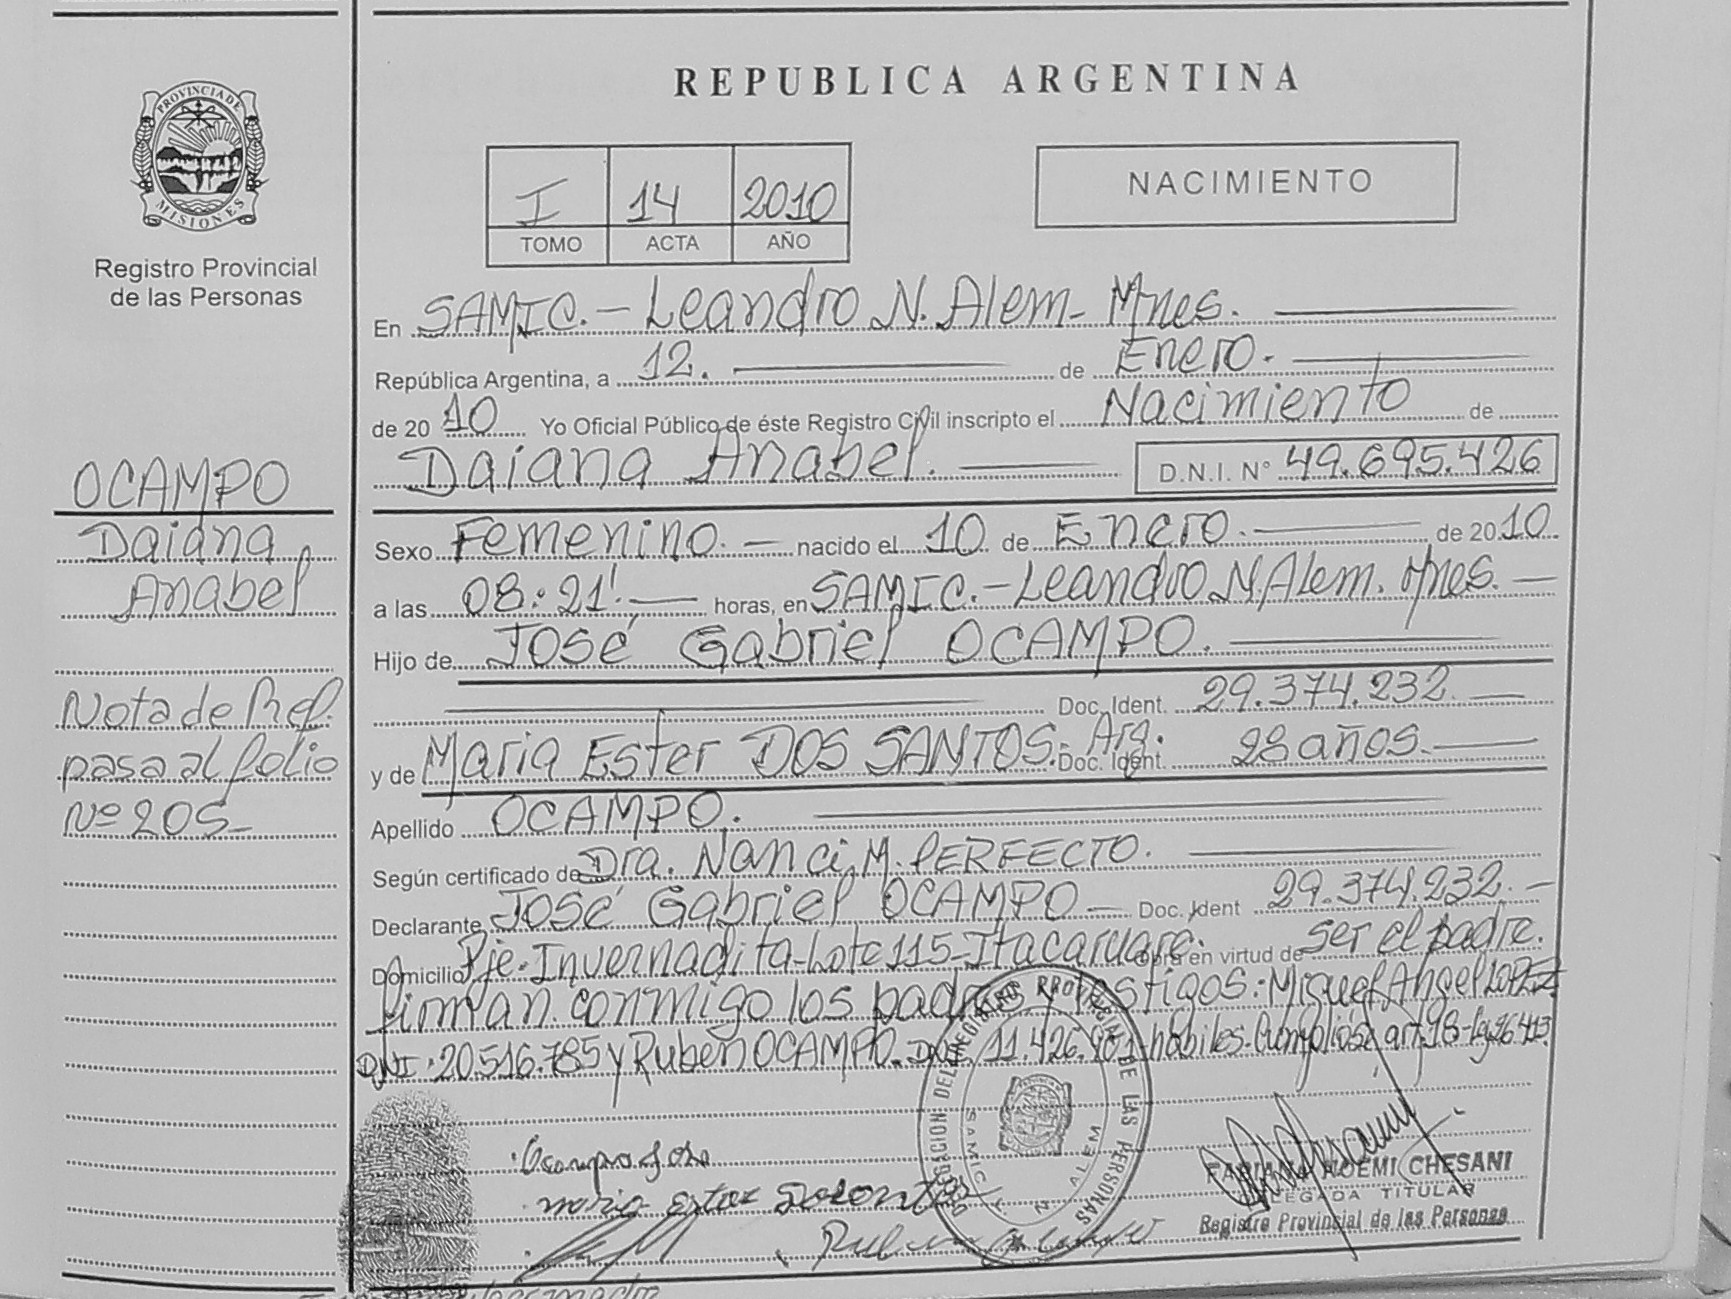 PROVINCIA DE
MISIONES
Registro Provincial
de las Personas
OCAMPO
Daiana
Anabel
Nota de Ref.
pasa al folio
Nº 205-
REPUBLICA ARGENTINA
I 14 2010
TOMO ACTA AÑO
NACIMIENTO
En SAMIC.- Leandro N. Alem- Mnes.
República Argentina, a 12. de Enero.
de 2010 Yo Oficial Público de éste Registro Civil inscripto el Nacimiento de
Daiana Anabel. D.N.I. N° 49.695.426
Sexo Femenino. - nacido el 10 de Enero. de 2010
a las 08:21'. horas, en SAMIC.- Leandro N. Alem. Mnes. -
Hijo de José Gabriel OCAMPO.
Doc. Ident. 29.374.232.
y de Maria Ester DOS SANTOS.- Arg. Doc. Ident. 28 años.
Apellido OCAMPO.
Según certificado de Dra. Nanci M. PERFECTO.
Declarante José Gabriel OCAMPO - Doc. Ident 29.374.232. -
Domicilio Pje. Invernadita-Lote 115-Itacaruare. Obra en virtud de ser el padre.
firman conmigo los padres y testigos: Miguel Angel LOPEZ
DNI. 20.516.785 y Ruben OCAMPO. DNI. 11.426.901 hábiles. Cumplióse art. 98-Ley 26.413
DELEGACION DEL REGISTRO PROVINCIAL DE LAS PERSONAS
SAMIC Y N ALEM
Ocampo Jose
maria Ester
Ruben Ocampo
FABIANA NOEMI CHESANI
DELEGADA TITULAR
Registro Provincial de las Personas